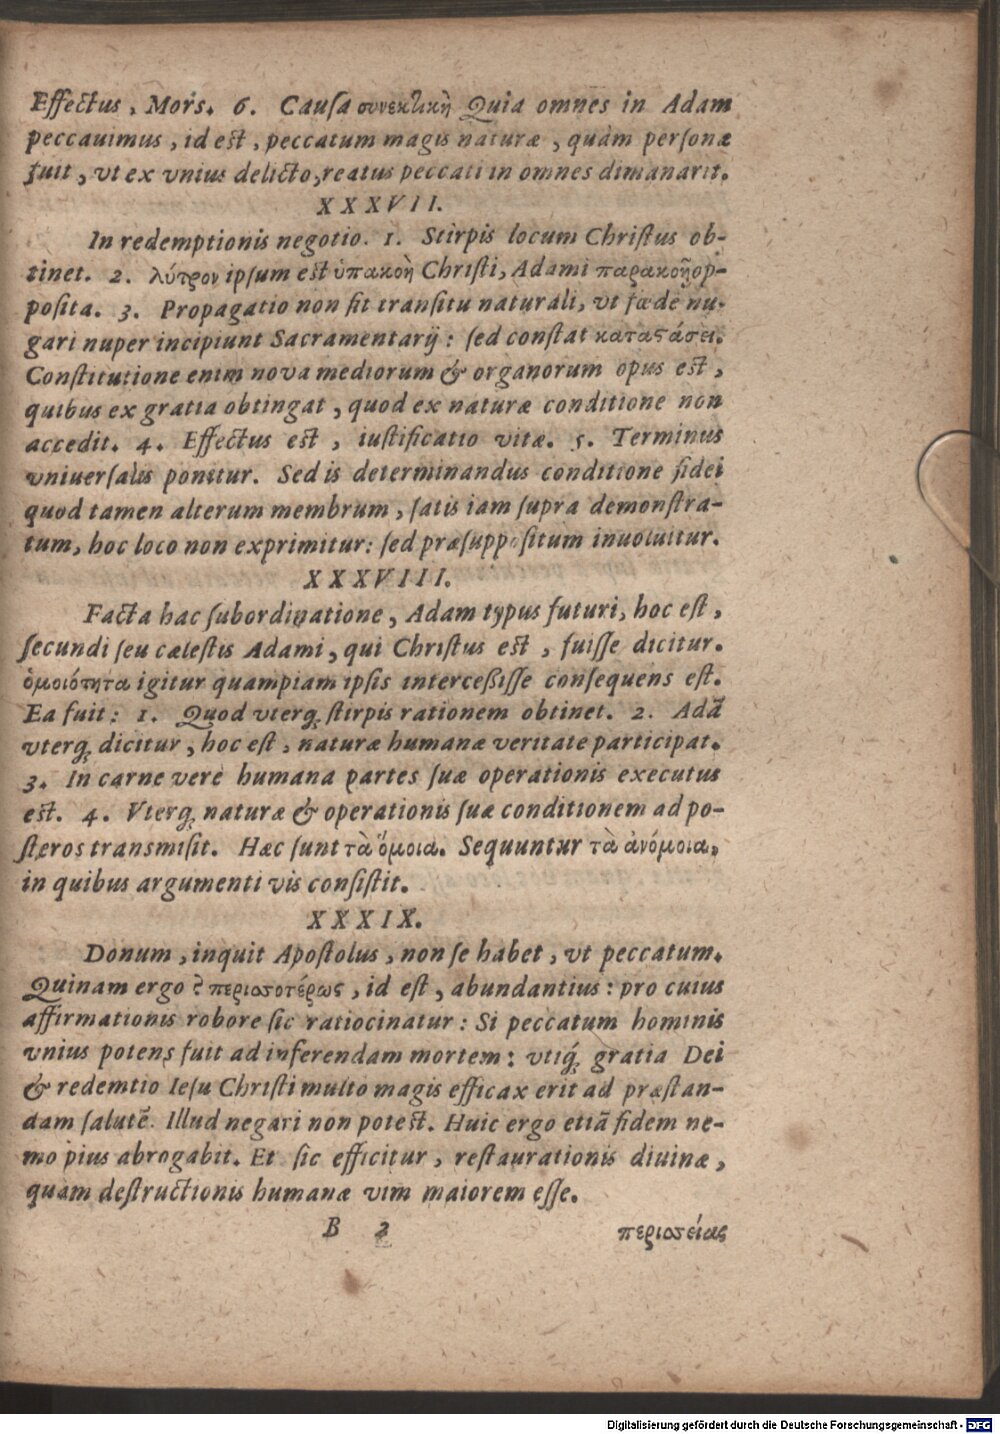 Effectus, Mors. 6. Causa συνεκτικὴ Quia omnes in Adam
peccauimus, id est, peccatum magis naturæ, quàm personæ
fuit, vt ex vnius delicto, reatus peccati in omnes dimanarit.
XXXVII.
In redemptionis negotio. 1. Stirpis locum Christus ob-
tinet. 2. λύτρον ipsum est ὑπακοὴ Christi, Adami παρακοῇ op-
posita. 3. Propagatio non fit transitu naturali, vt fœde nu-
gari nuper incipiunt Sacramentarij: sed constat καταστάσει.
Constitutione enim noua mediorum & organorum opus est,
quibus ex gratia obtingat, quod ex naturæ conditione non
accedit. 4. Effectus est, iustificatio vitæ. 5. Terminus
vniuersalis ponitur. Sed is determinandus conditione fidei
quod tamen alterum membrum, satis iam supra demonstra-
tum, hoc loco non exprimitur: sed præsuppositum inuoluitur.
XXXVIII.
Facta hac subordinatione, Adam typus futuri, hoc est,
secundi seu cælestis Adami, qui Christus est, fuisse dicitur.
ὁμοιότητα igitur quampiam ipsis interceßisse consequens est.
Ea fuit: 1. Quod vterq; stirpis rationem obtinet. 2. Adã
vterq; dicitur, hoc est, naturæ humanæ veritate participat.
3. In carne verè humana partes suæ operationis executus
est. 4. Vterq; naturæ & operationis suæ conditionem ad po-
steros transmisit. Hæc sunt τὰ ὅμοια. Sequuntur τὰ ἀνόμοια,
in quibus argumenti vis consistit.
XXXIX.
Donum, inquit Apostolus, non se habet, vt peccatum.
Quinam ergo? περισσοτέρως, id est, abundantius: pro cuius
affirmationis robore sic ratiocinatur: Si peccatum hominis
vnius potens fuit ad inferendam mortem: vtiq; gratia Dei
& redemtio Iesu Christi multo magis efficax erit ad præstan-
dam salutẽ. Illud negari non potest. Huic ergo etiã fidem ne-
mo pius abrogabit. Et sic efficitur, restaurationis diuinæ,
quam destructionis humanæ vim maiorem esse.
B 2 περισσείας
Digitalisierung gefördert durch die Deutsche Forschungsgemeinschaft - DFG